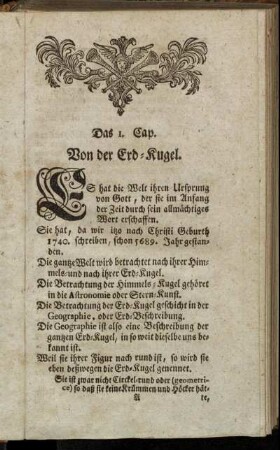 Das 1. Cap.
Von der Erd-Kugel.
ES hat die Welt ihren Ursprung
von Gott, der sie im Anfang
der Zeit durch sein allmächtiges
Wort erschaffen.
Sie hat, da wir itzo nach Christi Geburth
1740. schreiben, schon 5689. Jahr gestan-
den.
Die gantze Welt wird betrachtet nach ihrer Him-
mels- und nach ihrer Erd-Kugel.
Die Betrachtung der Himmels-Kugel gehöret
in die Astronomie oder Stern-Kunst.
Die Betrachtung der Erd-Kugel geschicht in der
Geographie, oder Erd-Beschreibung.
Die Geographie ist also eine Beschreibung der
gantzen Erd-Kugel, in so weit dieselbe uns be-
kannt ist.
Weil sie ihrer Figur nach rund ist, so wird sie
eben deßwegen die Erd-Kugel genennet.
Sie ist zwar nicht Circkel-rund oder (geometri-
ce) so daß sie keine Krümmen und Höcker hät-
A te,